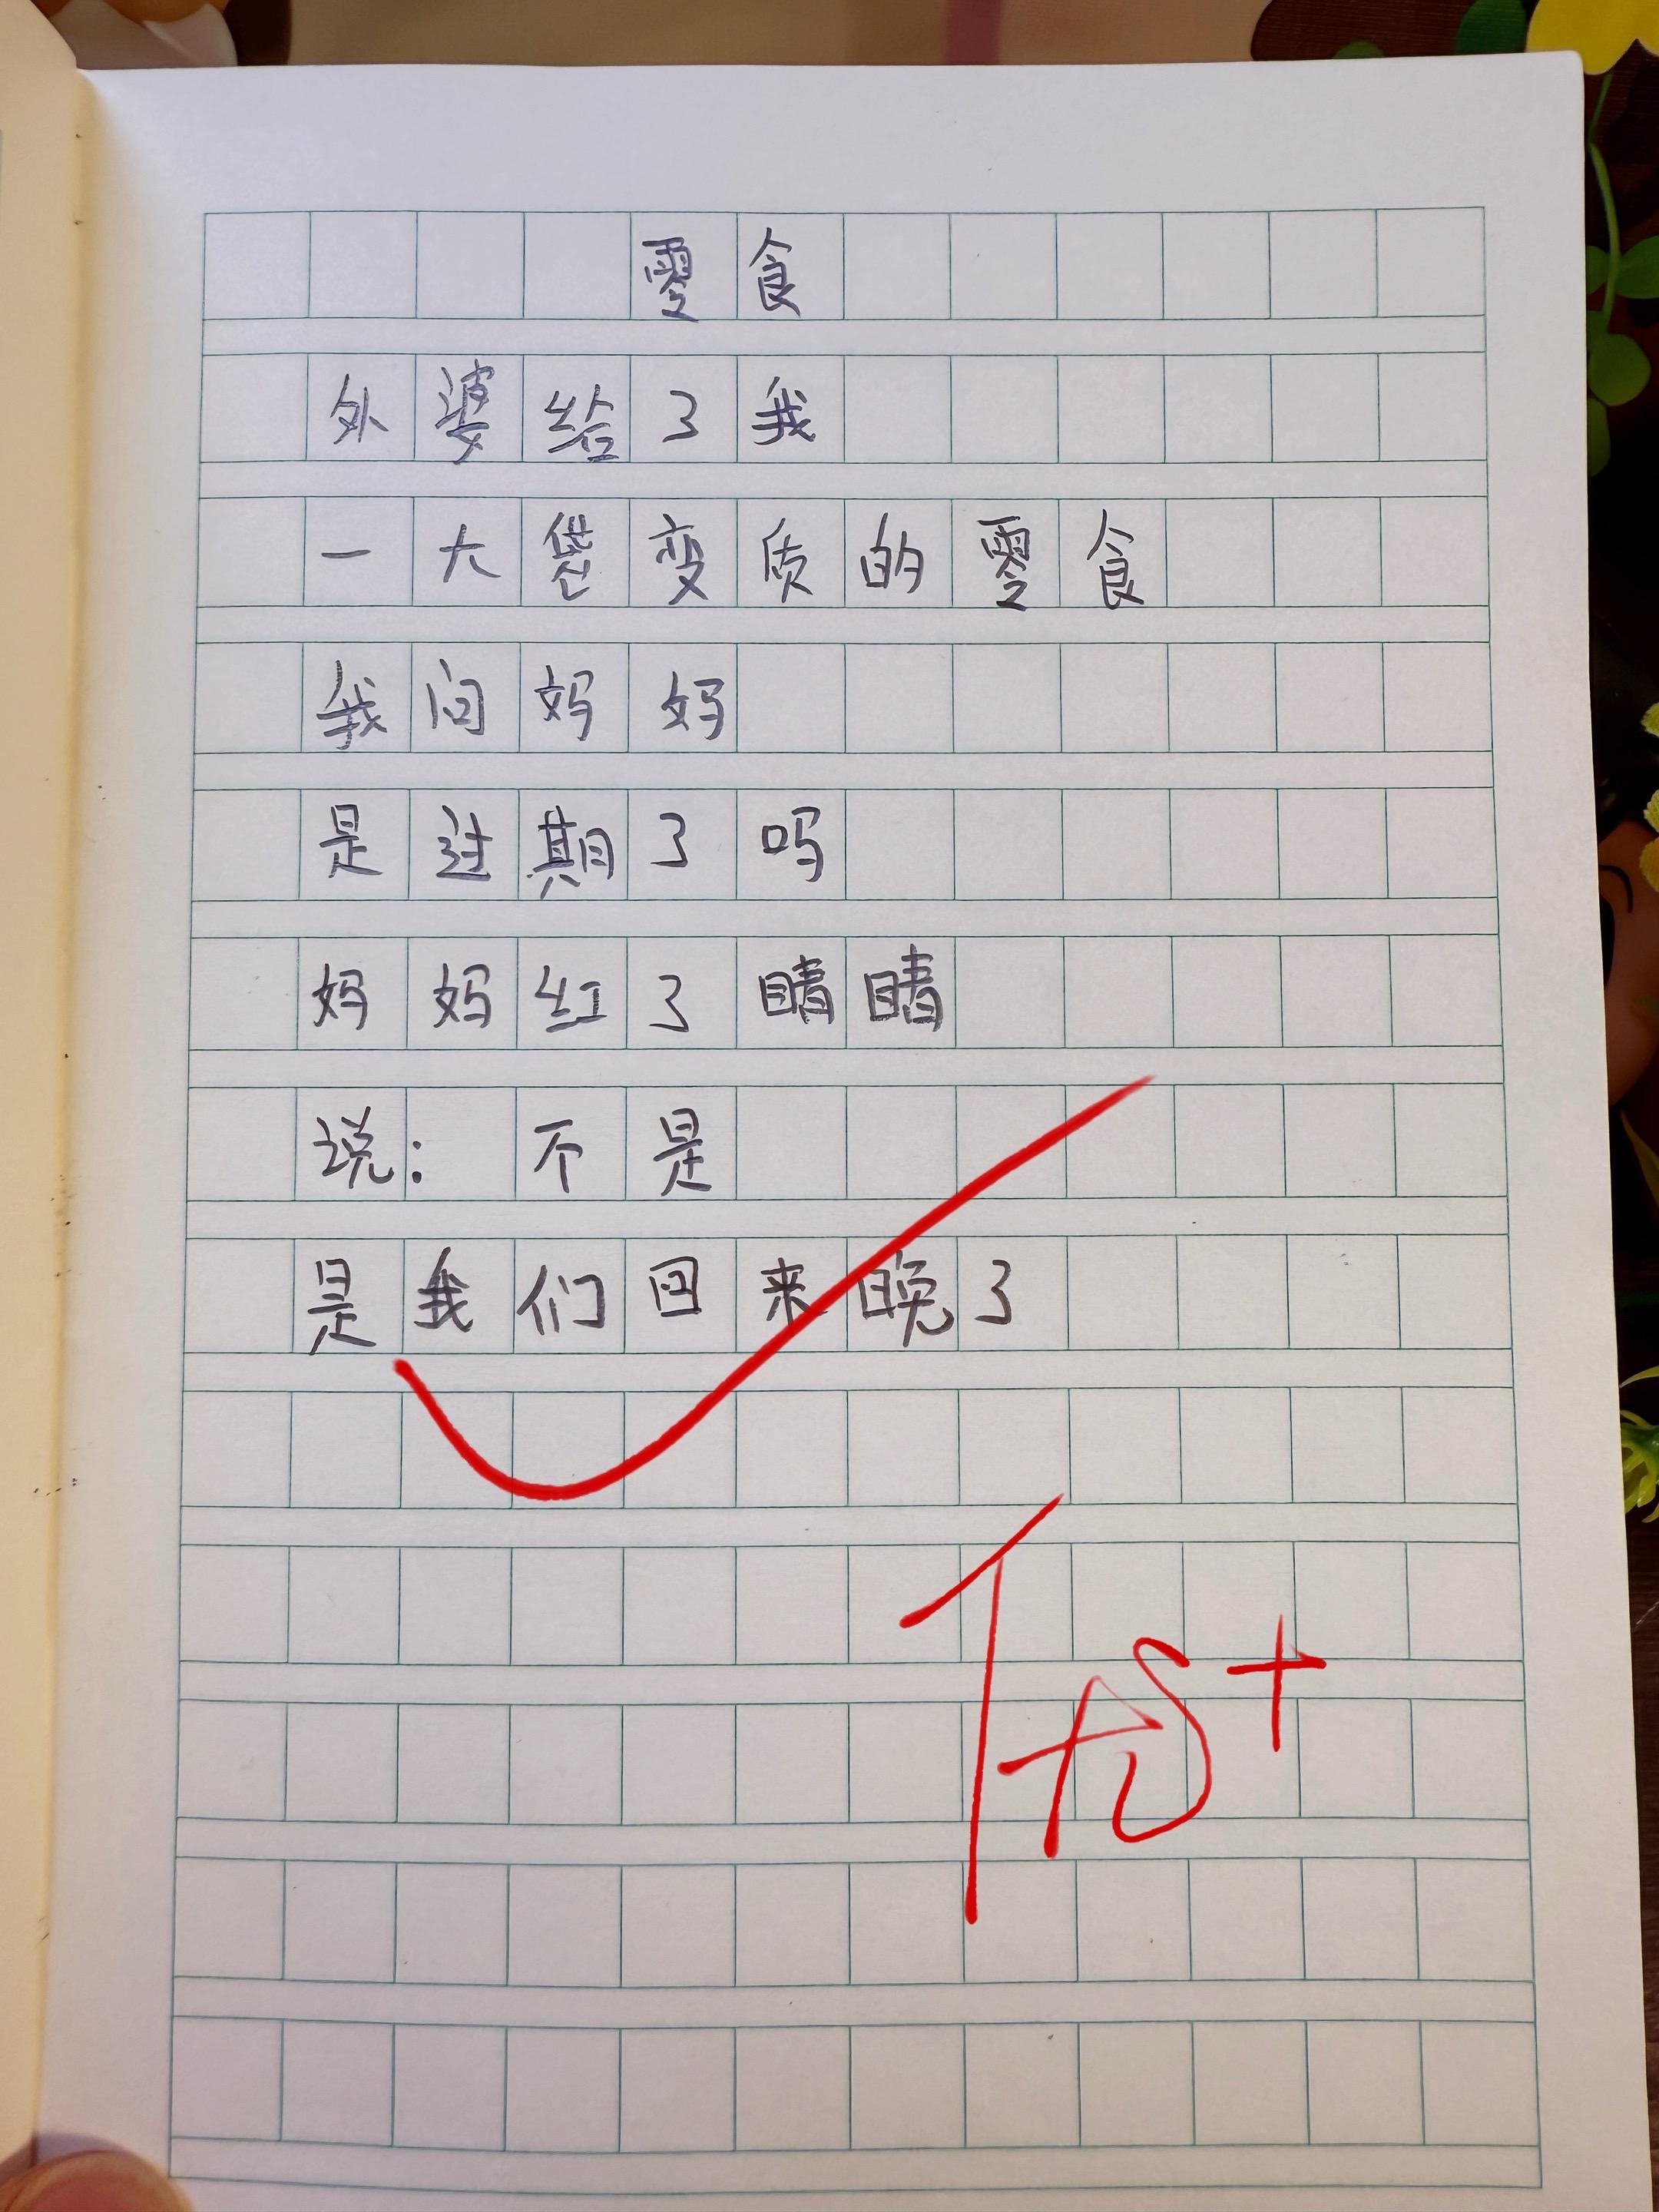 零食
外婆给了我
一大袋变质的零食
我问妈妈
是过期了吗
妈妈红了睛睛
说: 不是
是我们回来晚了